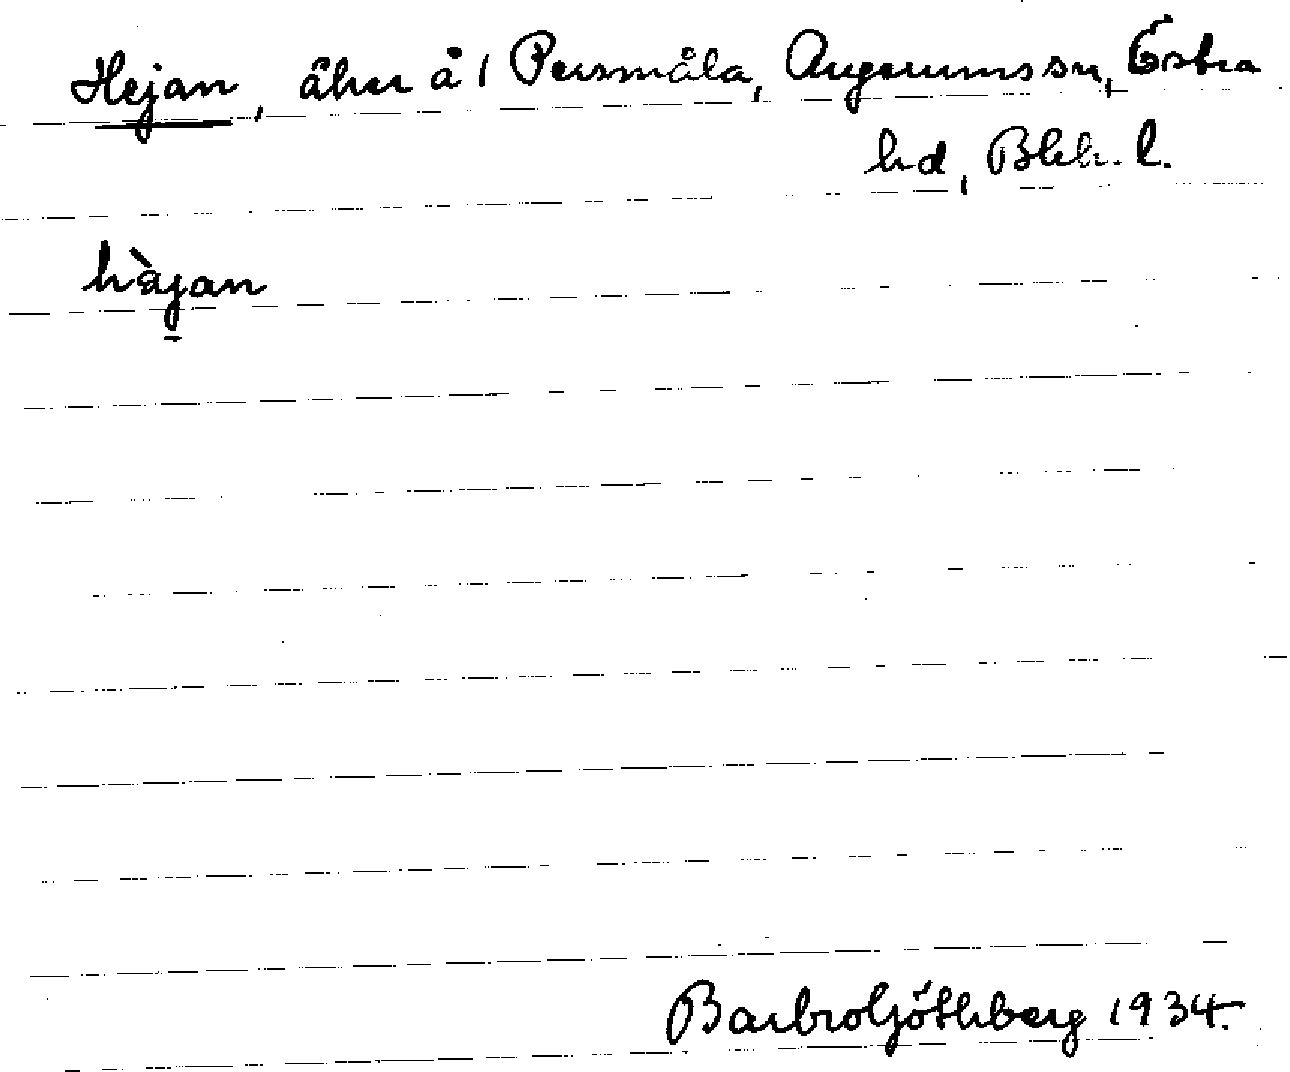 Hejan, åker å 1 Persmåla, Augerums sn, Östra
hd, Blek. l.
hàjan
Barbro Göthberg 1934.